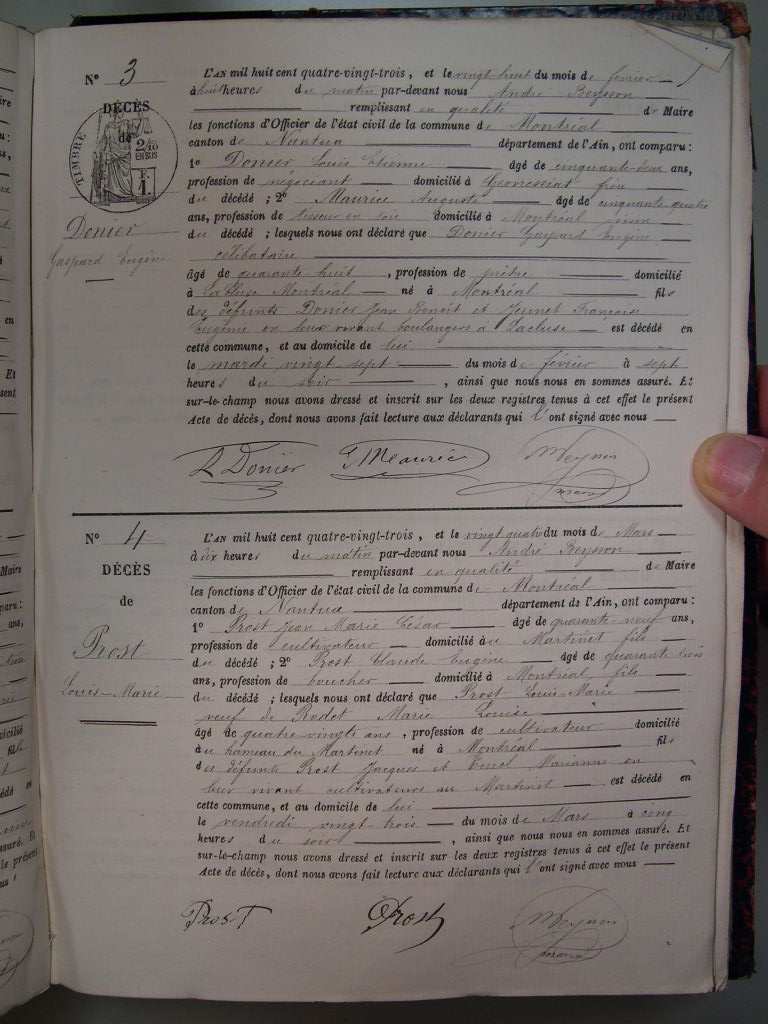 N° 3
DÉCÈS
de
TIMBRE
2/10
EN SUS
Donier
Gaspard Eugène
L'AN mil huit cent quatre-vingt-trois, et le vingt huit du mois de février
à huit heures du matin par-devant nous André Beysson
remplissant en qualité de Maire
les fonctions d'Officier de l'état civil de la commune de Montréal
canton de Nantua département de l'Ain, ont comparu :
1° Donier Louis Etienne âgé de cinquante-deux ans,
profession de négociant domicilié à Geovressiat frère
du décédé ; 2° Maurice Auguste âgé de cinquante quatre
ans, profession de tisseur en soie domicilié à Montréal voisin
du décédé ; lesquels nous ont déclaré que Donier Gaspard Eugène
célibataire
âgé de quarante huit , profession de prêtre domicilié
à Montréal né à Montréal fils
des défunts Donier Jean Benoît et Jeunet Françoise
Eugénie en leur vivant boulangers à Lacluse est décédé en
cette commune, et au domicile de lui
le mardi vingt sept du mois de février à sept
heures du soir , ainsi que nous nous en sommes assuré. Et
sur-le-champ nous avons dressé et inscrit sur les deux registres tenus à cet effet le présent
Acte de décès, dont nous avons fait lecture aux déclarants qui l'ont signé avec nous
Donier Maurice
N° 4
DÉCÈS
de
Prost
Louis-Marie
L'AN mil huit cent quatre-vingt-trois, et le vingt quatre du mois de Mars
à dix heures du matin par-devant nous André Beysson
remplissant en qualité de Maire
les fonctions d'Officier de l'état civil de la commune de Montréal
canton de Nantua département de l'Ain, ont comparu :
1° Prost Jean Marie César âgé de quarante neuf ans,
profession de cultivateur domicilié au Martinet fils
du décédé ; 2° Prost Claude Eugène âgé de quarante trois
ans, profession de boucher domicilié à Montréal fils
du décédé ; lesquels nous ont déclaré que Prost Louis-Marie
veuf de Rodet Marie Louise
âgé de quatre-vingts ans , profession de cultivateur domicilié
au hameau du Martinet né à Montréal fils
des défunts Prost Jacques et Marianne en
leur vivant cultivateurs au Martinet est décédé en
cette commune, et au domicile de lui
le vendredi vingt-trois du mois de Mars à cinq
heures du soir , ainsi que nous nous en sommes assuré. Et
sur-le-champ nous avons dressé et inscrit sur les deux registres tenus à cet effet le présent
Acte de décès, dont nous avons fait lecture aux déclarants qui l'ont signé avec nous
Prost Prost